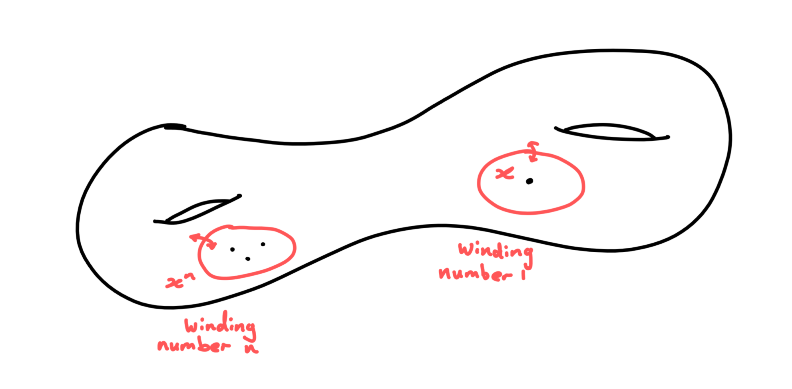 x
winding
number 1
xⁿ
winding
number n